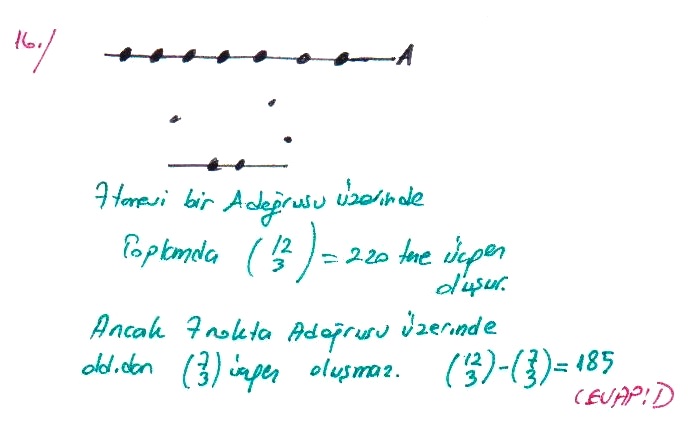 16./
A
7 tanesi bir A doğrusu üzerinde
Toplamda (12 3) = 220 tane üçgen
oluşur.
Ancak 7 nokta A doğrusu üzerinde
old.dan (7 3) üçgen oluşmaz. (12 3) - (7 3) = 185
CEVAP: D